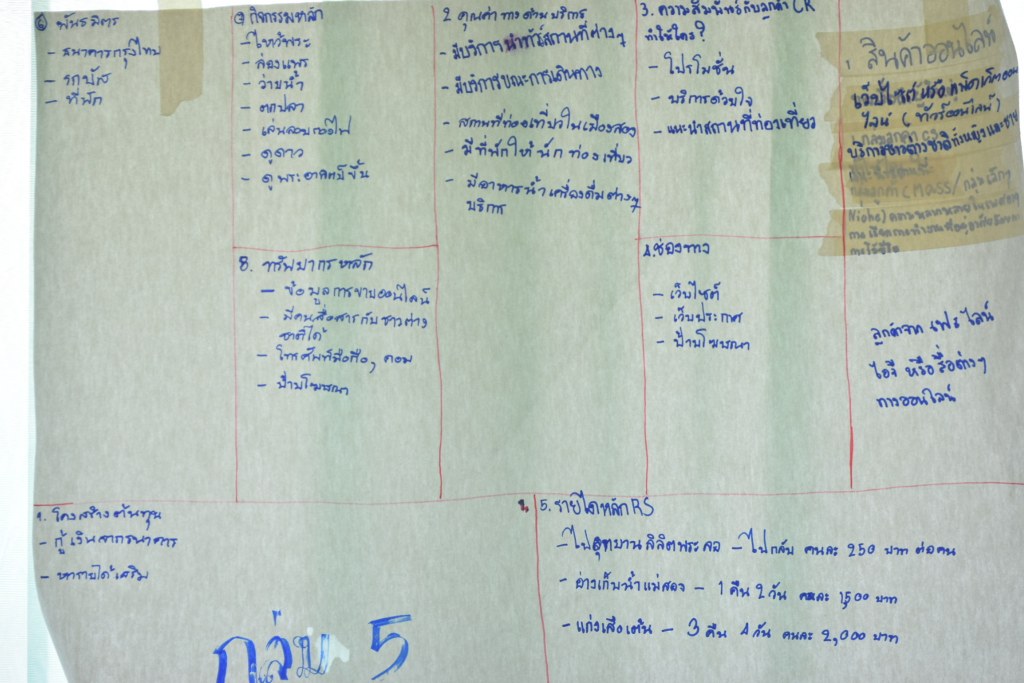 ⑥ พันธมิตร
- ธนาคารกรุงไทย
- รถบัส
- ที่พัก
⑦ กิจกรรมหลัก
- ไหว้พระ
- ล่องแพร
- ว่ายน้ำ
- ตกปลา
- เล่นรอบกองไฟ
- ดูดาว
- ดูพระอาทิตย์ขึ้น
2 คุณค่าทางด้านบริการ
- มีบริการนำทัวร์สถานที่ต่างๆ
- มีบริการขณะการเดินทาง
- สถานที่ท่องเที่ยวในเมืองสอง
- มีที่พักให้นักท่องเที่ยว
- มีอาหารน้ำเครื่องดื่มต่างๆ
บริการ
3. ความสัมพันธ์กับลูกค้า CR
ทำให้ใคร?
- โปรโมชั่น
- บริการด้วยใจ
- แนะนำสถานที่ท่องเที่ยว
1. สินค้าออนไลน์
เว็บไซต์ หรือ
ไลน์ (ทัวร์ออนไลน์)
(Mass/
Niche)
ลูกค้าจาก เฟส ไลน์
ไอจี หรือสื่อต่างๆ
ทางออนไลน์
8. ทรัพยากรหลัก
- ข้อมูลการขายออนไลน์
- มีคนสื่อสารกับชาวต่าง
ชาติได้
- โทรศัพท์มือถือ, คอม
- ป้ายโฆษณา
4. ช่องทาง
- เว็บไซต์
- เว็บประกาศ
- ป้ายโฆษณา
9. โครงสร้างต้นทุน
- กู้เงินจากธนาคาร
- หารายได้เสริม
5. รายได้หลัก RS
- ไปอุทยานลิลิตพระลอ - ไปกลับ คนละ 250 บาท ต่อคน
- อ่างเก็บน้ำแม่สอง - 1 คืน 2 วัน คนละ 1,500 บาท
- แก่งเสือเต้น - 3 คืน 4 วัน คนละ 2,000 บาท
กลุ่ม 5